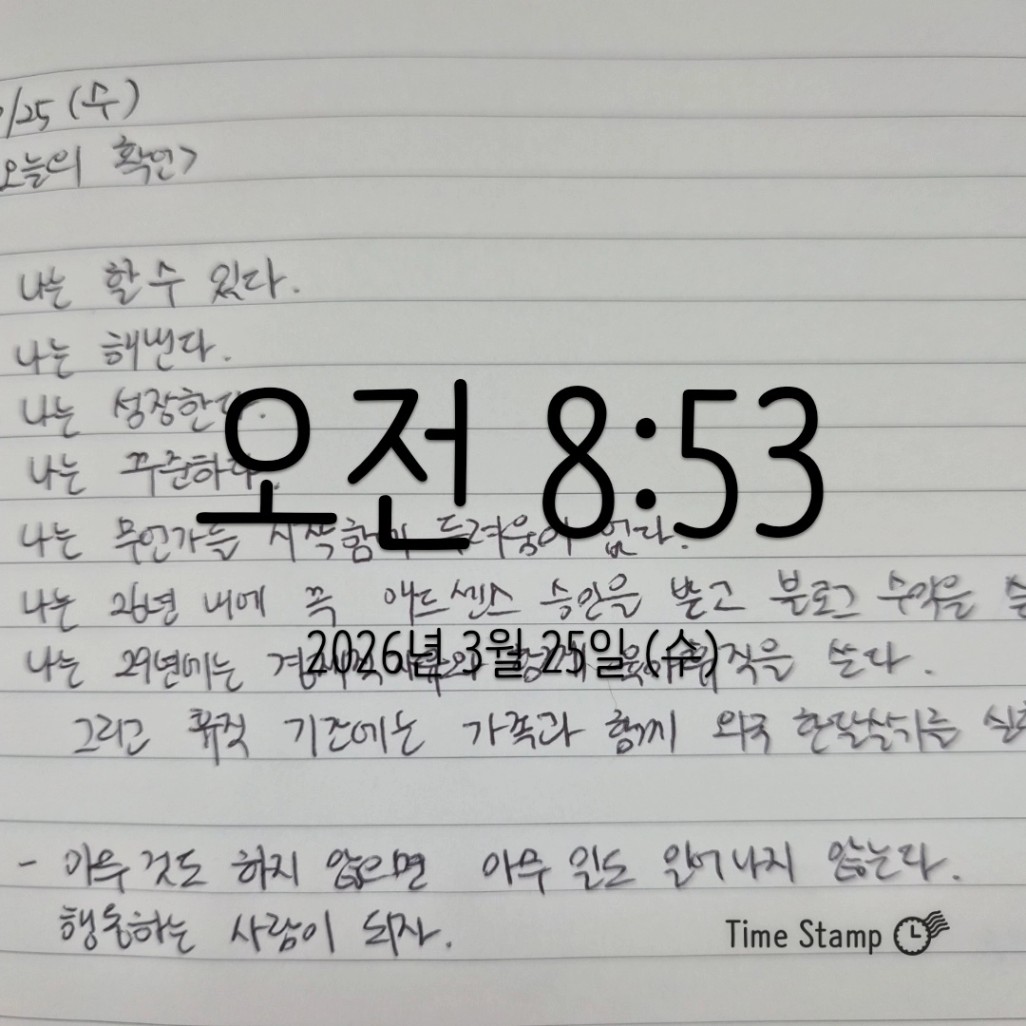 /25 (수)
오늘의 확언>
나는 할 수 있다.
나는 해낸다.
나는 성장한다.
나는 꾸준하다.
오전 8:53
나는 무언가를 시작함에 두려움이 없다.
나는 26년 내에 꼭 애드센스 승인을 받고 블로그 수익을
나는 29년에는 경제적 직을 쓴다.
2026년 3월 25일 (수)
그리고 휴직 기간에는 가족과 함께 외국 한달살기를
- 아무 것도 하지 않으면 아무 일도 일어나지 않는다.
행동하는 사람이 되자.
Time Stamp